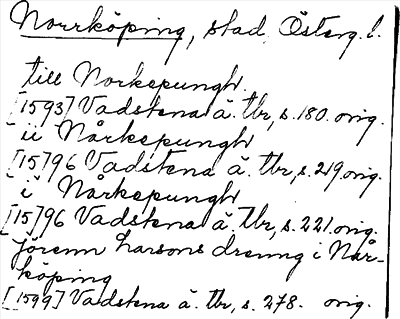 Norrköping, stad, Österg. l.
till Norkepungh.
[1593] Vadstena ä. tbr, s. 180. orig.
ii Nårkepungh
[15]96 Vadstena ä. tbr, s. 219 orig.
i Nårkepungh
[15]96 Vadstena ä. tbr, s. 221. orig.
jörenn Larsons drenng i Når-
köping
[1599] Vadstena ä. tbr, s. 278. orig.